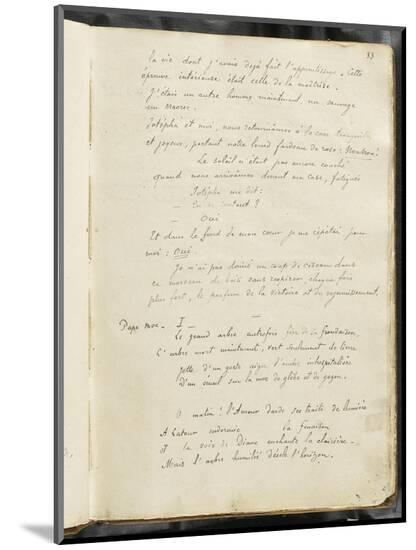 33
la vie dont j'avais dejà fait l'apprentissage. Cette
épreuve intérieure était celle de la maîtrise.
J'étais un autre homme maintenant, un sauvage
un Maorie.
Jotépha et moi, nous retournâmes à la case tranquilles
et joyeux, portant notre lourd fardeau de rose: Noanoa!
Le soleil n'était pas encore couché
quand nous arrivâmes devant ma case, fatigués
Jotépha me dit:
— Es tu content?
— Oui
Et dans le fond de mon cœur je répétai pour
moi: Oui
Je n'ai pas donné un coup de ciseau dans
ce morceau de bois sans respirer, chaque fois
plus fort, le parfum de la victoire et du rajeunissement.
I
Le grand arbre autrefois fier de sa frondaison,
L'arbre mort maintenant, vert seulement de lierre
Jette d'un geste aigu d'année inhospitalière
D'un sur la mer de glèbe et de gazon.
O matin! l'Amour darde ses traits de lumière
A Latour endormie la fenaison
Et la voix de Diane enchante la clairière.
Mais l'arbre humilié désole l'horizon.